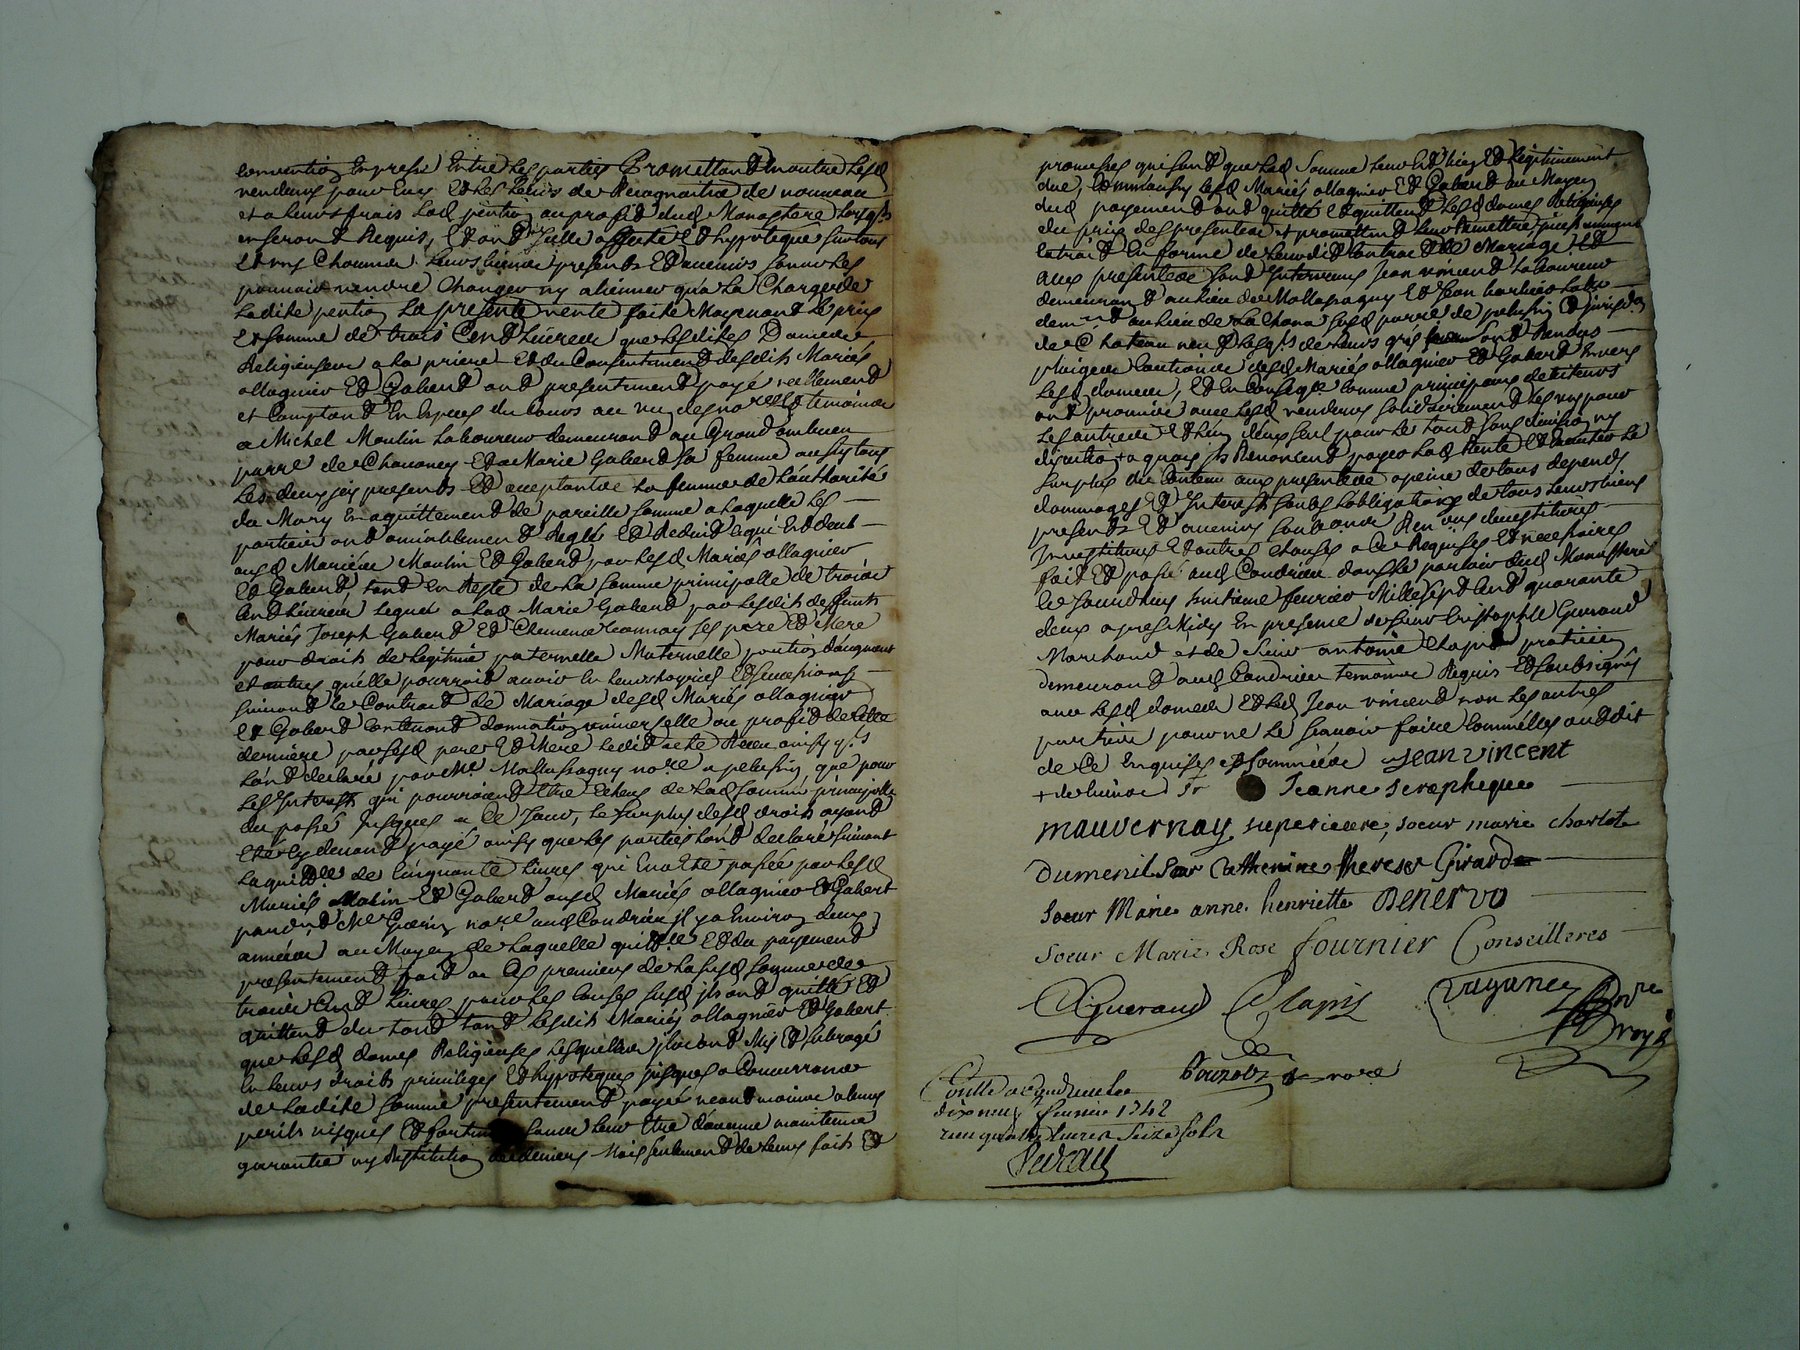 convention expresse Entre les parties Promettant en outre lesd
vendeurs pour Eux Et les leurs de Recognoitre de nouveau
et a leurs frais lad pention au profit dud Monastere lorsqls
en seront Requis, Et ont Icelle assise Et hypotequé sur tous
Et uns Chacuns leurs biens presents Et avenirs sans les
pouvoir vendre Changer ny aliener qua La Charge de
Ladite pention La presente vente faite Moyenant Le prix
Et somme de trois Cent Livres que lesdites Dames
Religieuses a la priere Et du Consentement desdits Mariés
ollagnier Et Gabert ont presentement payé reellement
et Comptant En Especes du Cours au vu des no.res Et temoins
a Michel Moulin Laboureur demeurant au Grand
parre de Chavaney Et a Marie Gabert sa femme aussy tous
Les deux icy presents Et acceptants la femme de L'authorité
du Mary En aquittement de pareille somme a laquelle les
parties ont amiablement Reglé Et Reduit ce qui Est deub
ausd Mariés Moulin Et Gabert par lesd Mariés ollagnier
Et Gabert, tant En Reste de la somme principalle de trois
Cent Livres legué a lad Marie Gabert par lesdits deffunts
Mariés Joseph Gabert Et Clemence ses pere Et Mere
pour droits de legitime paternelle Maternelle portion d'augment
et autres qu'elle pourroit avoir En leurs hoyries Et successions
suivant le Contrat de Mariage desd Mariés ollagnier
Et Gabert Contenant donnation universelle au profit de cette
derniere par sesd pere Et Mere ledit acte Receu ainsy qls
l'ont declaré par Me. no.re a pelussin, que pour
Les Interests qui pourroient Etre Echeus de lad somme principalle
du passé Jusques a Ce Jour, le surplus desd droits ayant
Eté Cy devant payé ainsy que les parties l'ont declaré suivant
la quitt.ce de Cinquante livres qui En a Eté passée par lesd
Mariés Molin Et Gabert ausd Mariés ollagnier Et Gabert
pardevt Me no.re aud Condrieu il y a Environ deux
années au Moyen de laquelle quitt.ce Et du payement
presentement fait a Ces premiers de la susd somme de
trois Cent Livres pour les Causes susd ils ont quitté Et
quittent du tout tant lesdits Mariés ollagnier Et Gabert
que lesd dames Religieuses Lesquelles ils ont Mis Et subrogé
En leurs droits privileges Et hypoteques jusques a Concurrance
de Ladite somme presentement payée neantmoins a leurs
perils risques Et fortunes sans leur Etre d'aucune maintenue
garantie ny Restitution de deniers Mais seulement de leurs faits Et
promesses qui sont que lad somme leur Est bien Et legitimement
due, Et moyenant ce lesd Mariés ollagnier Et Gabert au Moyen
dud payement ont quitté Et quittent lesd dames Religieuses
du prix des presentes et promettent leur Remettre
Extrait En forme de leurdit Contract de Mariage Et
aux presentes sont Intervenus Jean vincent Laboureur
demeurant au lieu de Et Jean
dem.nt au lieu de La Chana susd parre de pelussin Et Juris.on
de Chateau neuf lesqls de leurs gré sont Rendus
pleiges Cautions desd Mariés ollagnier Et Gabert Envers
lesd dames, Et En Conseq.ce Comme principaux debiteurs
ont promis avec lesd vendeurs solidairement les uns pour
les autres Et lun deux seul pour le tout sans division ny
discution a quoy ils Renoncent payer lad Rente Et Executer le
surplus du Contenu aux presentes a peine de tous depends
dommages Et Interests sous l'obligation de tous leurs biens
presents Et avenirs soumissions Ren.ons devestitures
Investitures Et autres Clauses a Ce Requises Et necessaires
fait Et passé aud Condrieu dans le parloir dud Monastere
Ce Jourdhuy huitieme fevrier Mille Sept Cent quarante
deux apres Midy En presence de sieur Cristophle Guerand
Marchand et de sieur antoine Clapit praticien
demeurant aud Condrieu temoins Requis Et soubsignés
avec lesd dames Et led Jean vincent non les autres
parties pour ne le sçavoir faire Comme elles ont dit
de Ce Enquises Et sommées Jean vincent
Jeanne seraphique
mauvernay, superieure, soeur marie charlote
Dumenil Soeur Catherine Therese Girard
Soeur Marie anne henriette Benervo
Soeur Marie Rose fournier Conseilleres
Guerand Clapit
Pouzols no.re
Conllé a Condrieu le
dix neuf fevrier 1742
recu quatre livres Seize sols